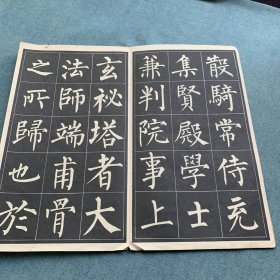 散騎常侍充
集賢殿學士
兼判院事上
玄祕塔者大
法師端甫骨
之所歸也於